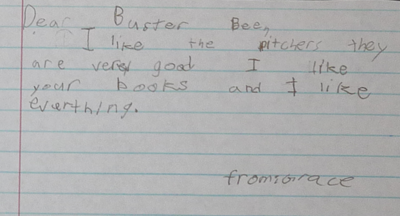 Dear Buster Bee,
I like the pitchers they
are very good I like
your books and I like
everthing.
from